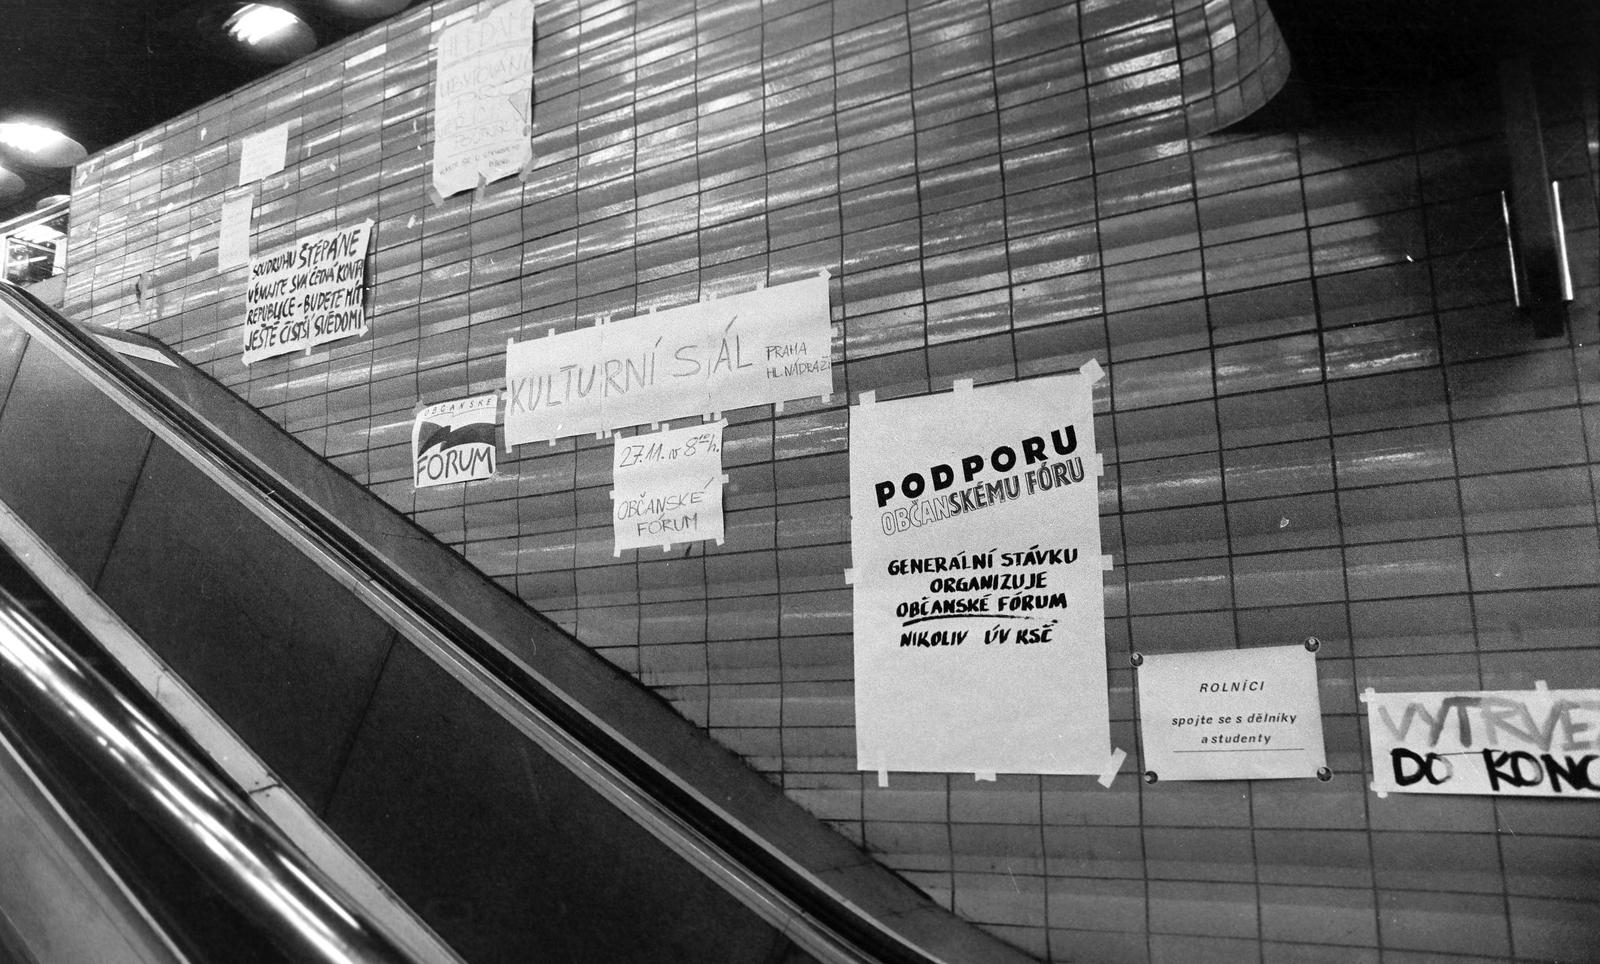 HLEDÁME
UBYTOVÁNÍ
SOUDRUHU ŠTĚPÁNE
VĚNUJTE SVÁ ČETNÁ KONTA
REPUBLICE - BUDETE MÍT
JEŠTĚ ČISTŠÍ SVĚDOMÍ
KULTURNÍ SÁL
PRAHA
HL. NÁDRAŽÍ
OBČANSKÉ
FÓRUM
27.11. v 8¹⁰ h.
OBČANSKÉ
FÓRUM
PODPORU
OBČANSKÉMU FÓRU
GENERÁLNÍ STÁVKU
ORGANIZUJE
OBČANSKÉ FÓRUM
NIKOLIV ÚV KSČ
ROLNÍCI
spojte se s dělníky
a studenty
VYTRVE
DO KONC